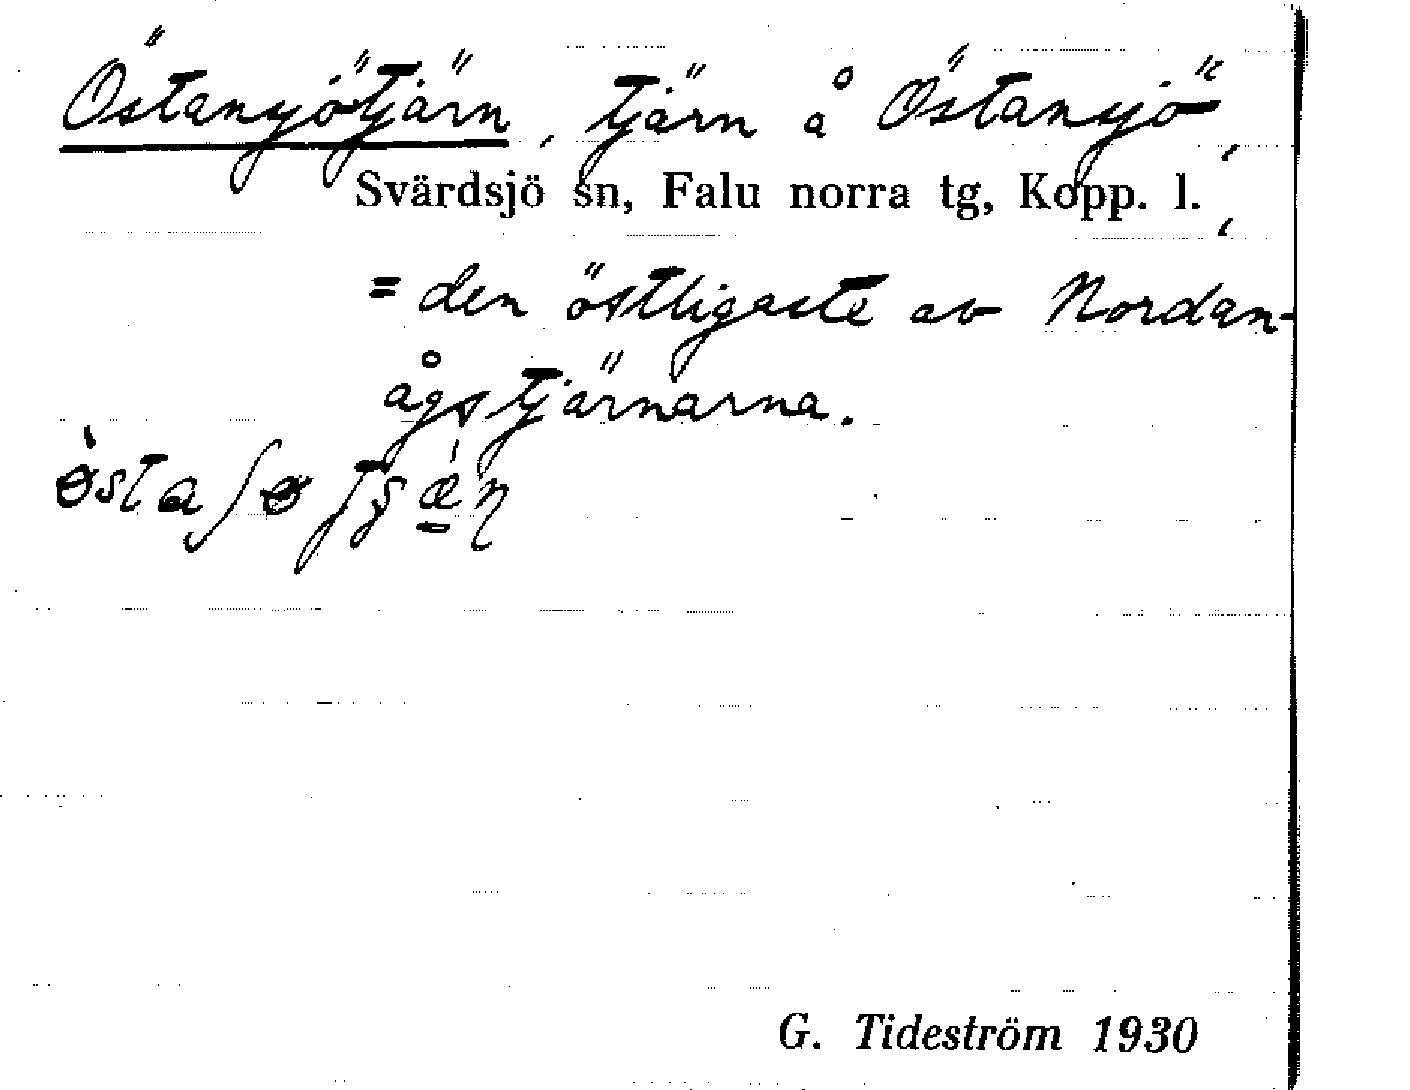 Östansjötjärn, tjärn å Östansjö,
Svärdsjö sn, Falu norra tg, Kopp. l.,
= den östligaste av Nordan-
ågstjärnarna.
G. Tideström 1930